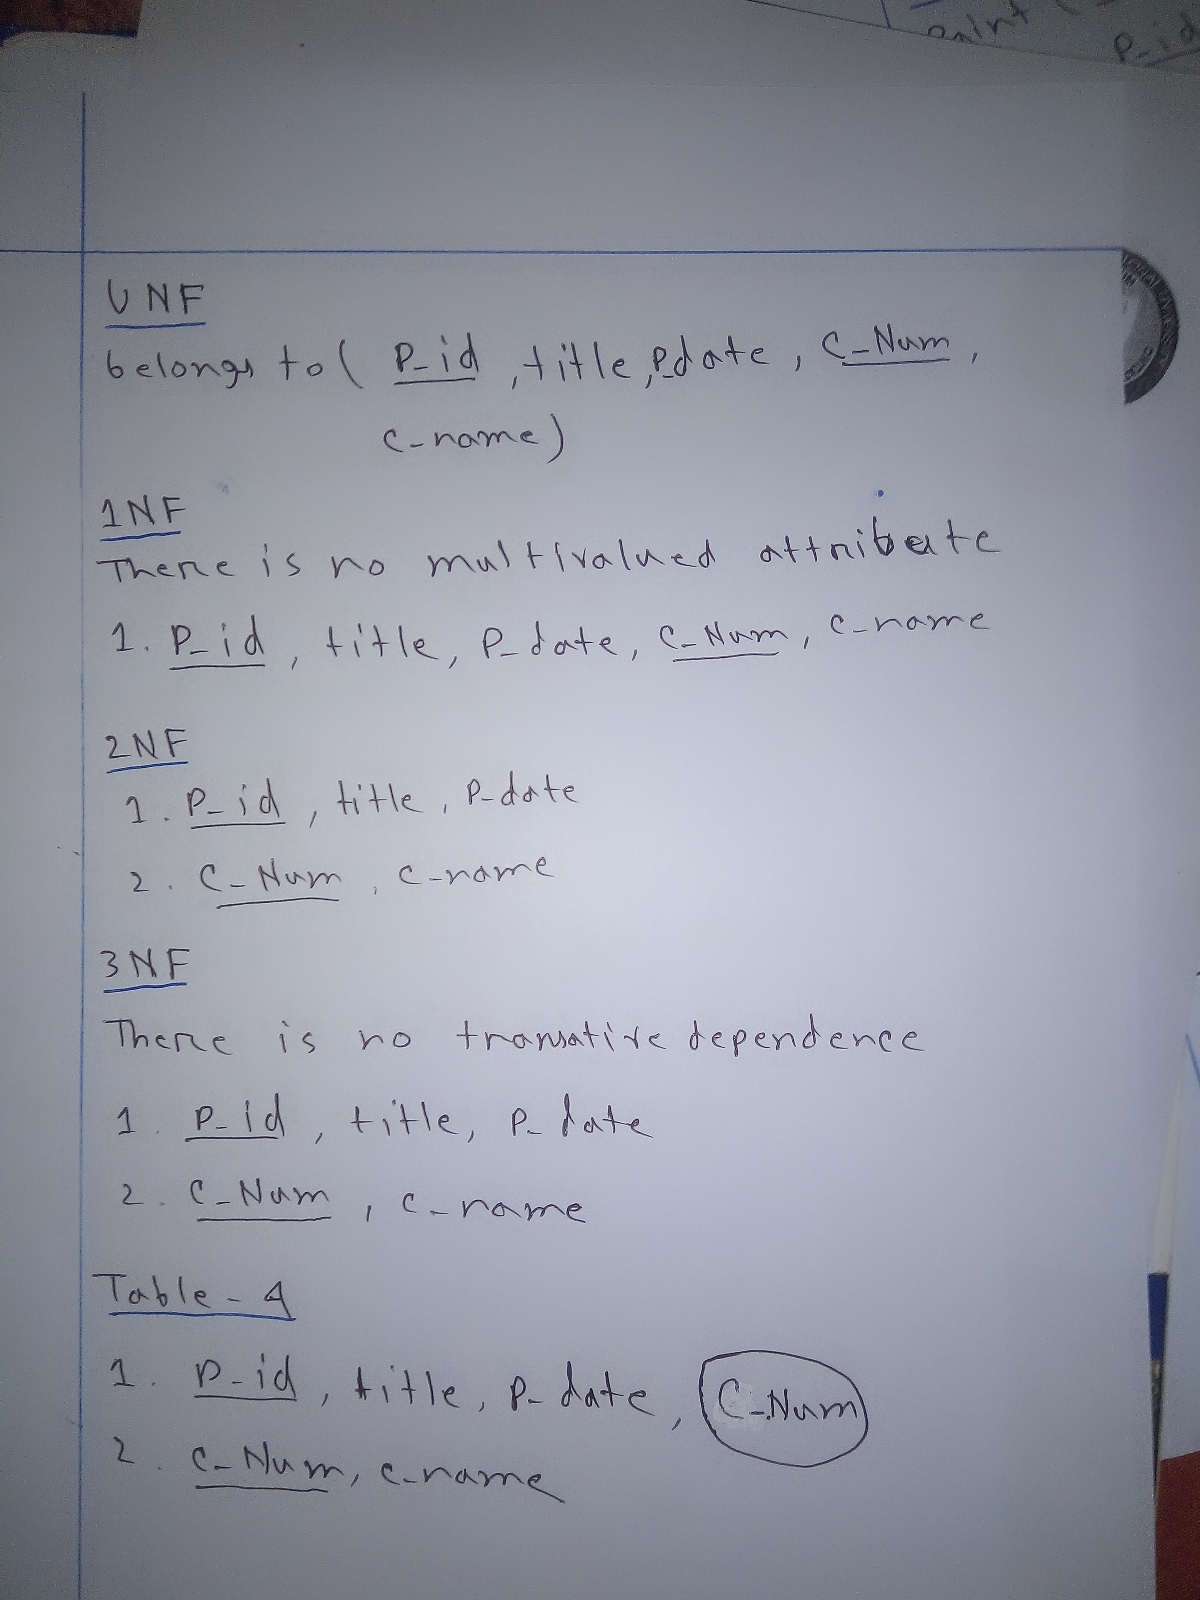 Paint
P_id
UNF
belongs to ( P_id, title, P_date, C_Num,
C_name)
1NF
There is no multivalued attribute
1. P_id, title, P_date, C_Num, C_name
2NF
1. P_id, title, P_date
2. C_Num, C_name
3NF
There is no transative dependence
1. P_id, title, P_date
2. C_Num, C_name
Table - 4
1. P_id, title, P_date, C_Num
2. C_Num, C_name